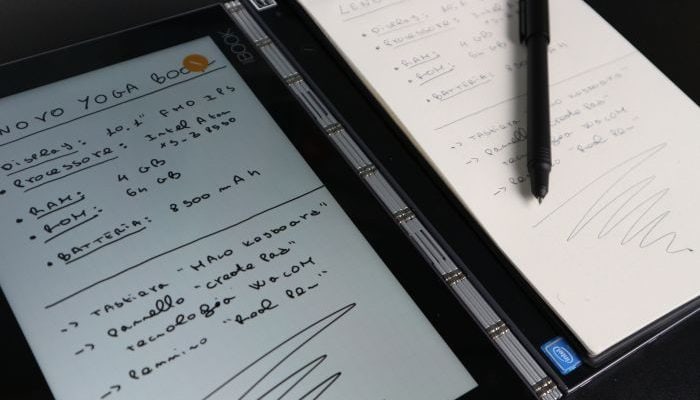 NOVO YOGA BOOK
• Display: 10.1" FHD IPS
• Processore: Intel Atom
x5-Z8550
• RAM: 4 GB
• ROM: 64 GB
• BATTERIA: 8500 mAh
-> TASTIERA "HALO KEYBOARD"
-> Pannello "Create Pad"
tecnologia WACOM
-> Pennino "Real Pen"
BOOK
LENO
• Display: 10.1
• Processore:
• RAM: 4 GB
• ROM: 64 GB
• BATTERIA: 8500 mAh
-> TASTIERA "HALO Keyboard"
-> Pannello "Create Pad"
tecnologia WACOM
-> Pennino "Real Pen"
intel